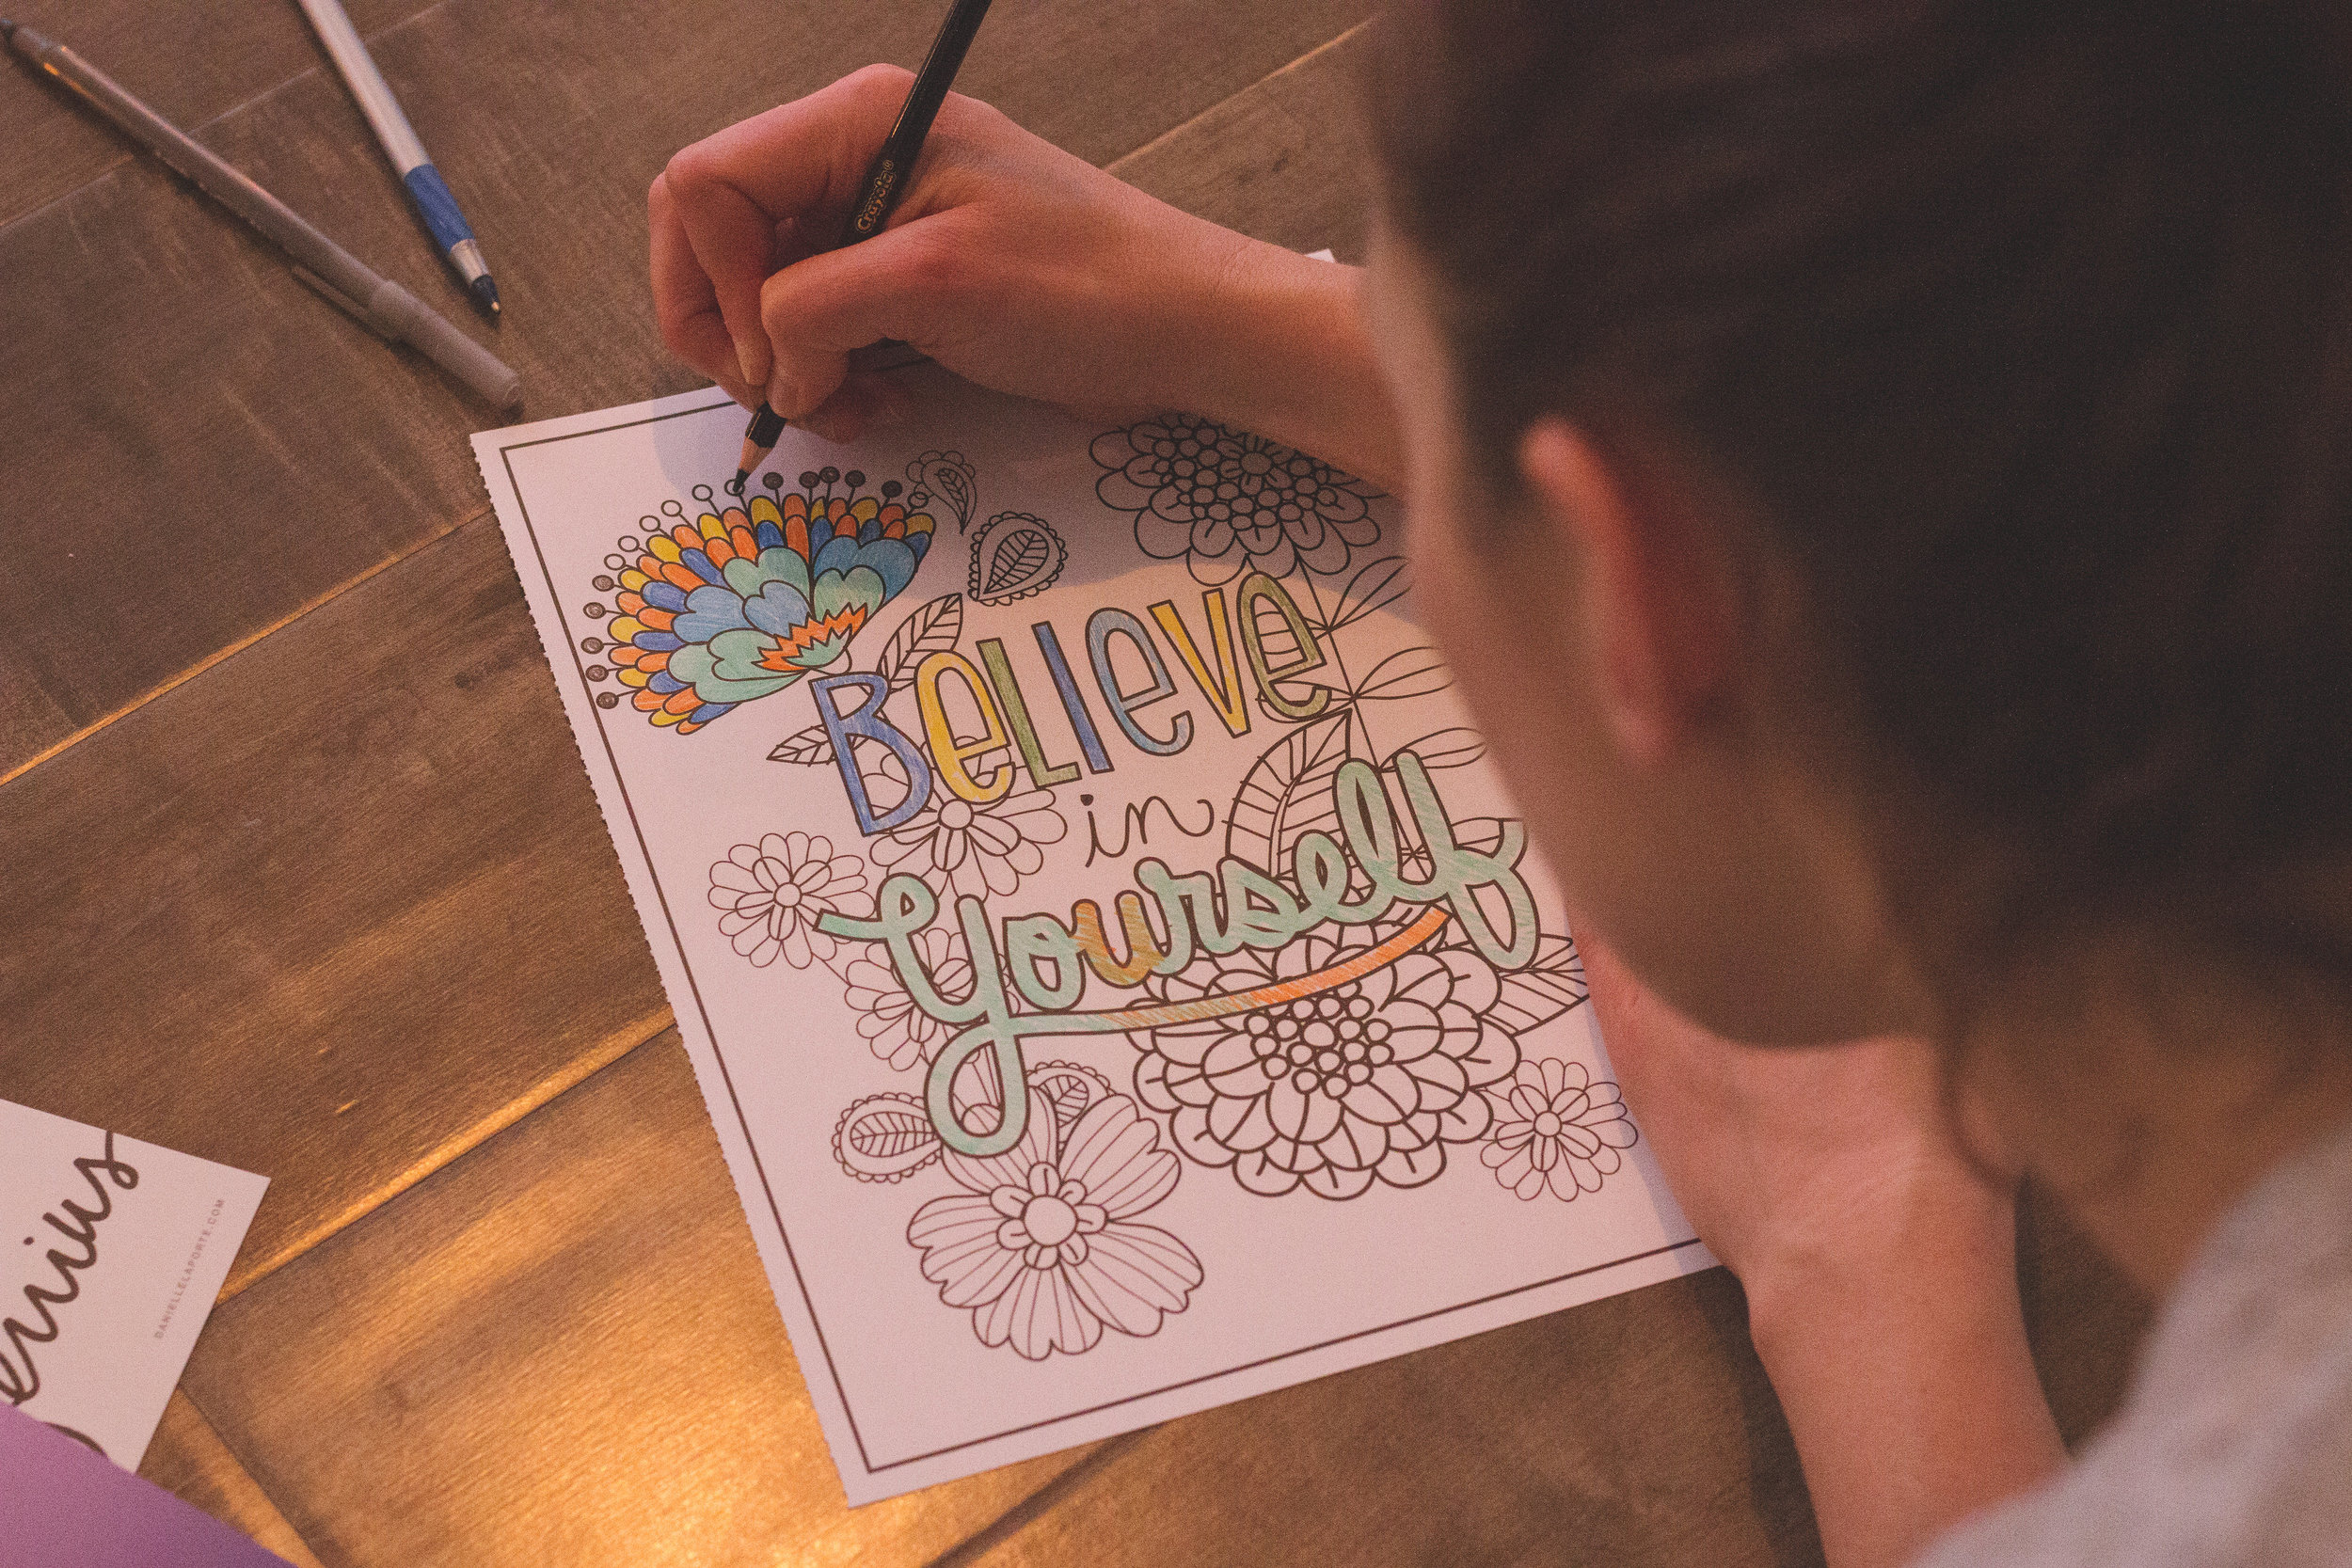 Crayola
BeLIeve
in
Yourself
DANIELLELAPORTE.COM